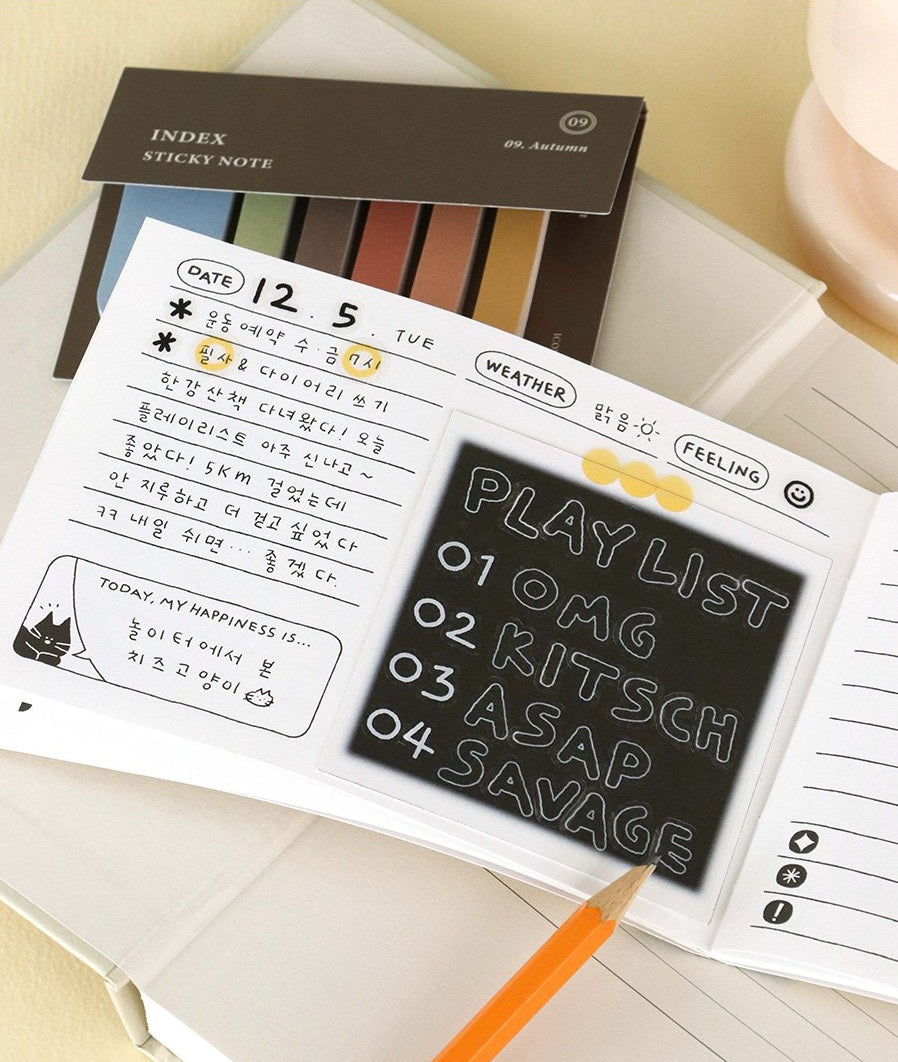 INDEX
STICKY NOTE
09
09. Autumn
DATE 12. 5. TUE
* 운동 예약 수·금 7시
* 필사 & 다이어리 쓰기
한강산책 다녀왔다! 오늘
플레이리스트 아주 신나고~
좋았다! 5Km 걸었는데
안 지루하고 더 걷고 싶었다
ㅋㅋ 내일 쉬면… 좋겠다.
TODAY, MY HAPPINESS IS...
놀이터에서 본
치즈고양이
WEATHER 맑음
FEELING
PLAYLIST
01 OMG
02 KITSCH
03 ASAP
04 SAVAGE